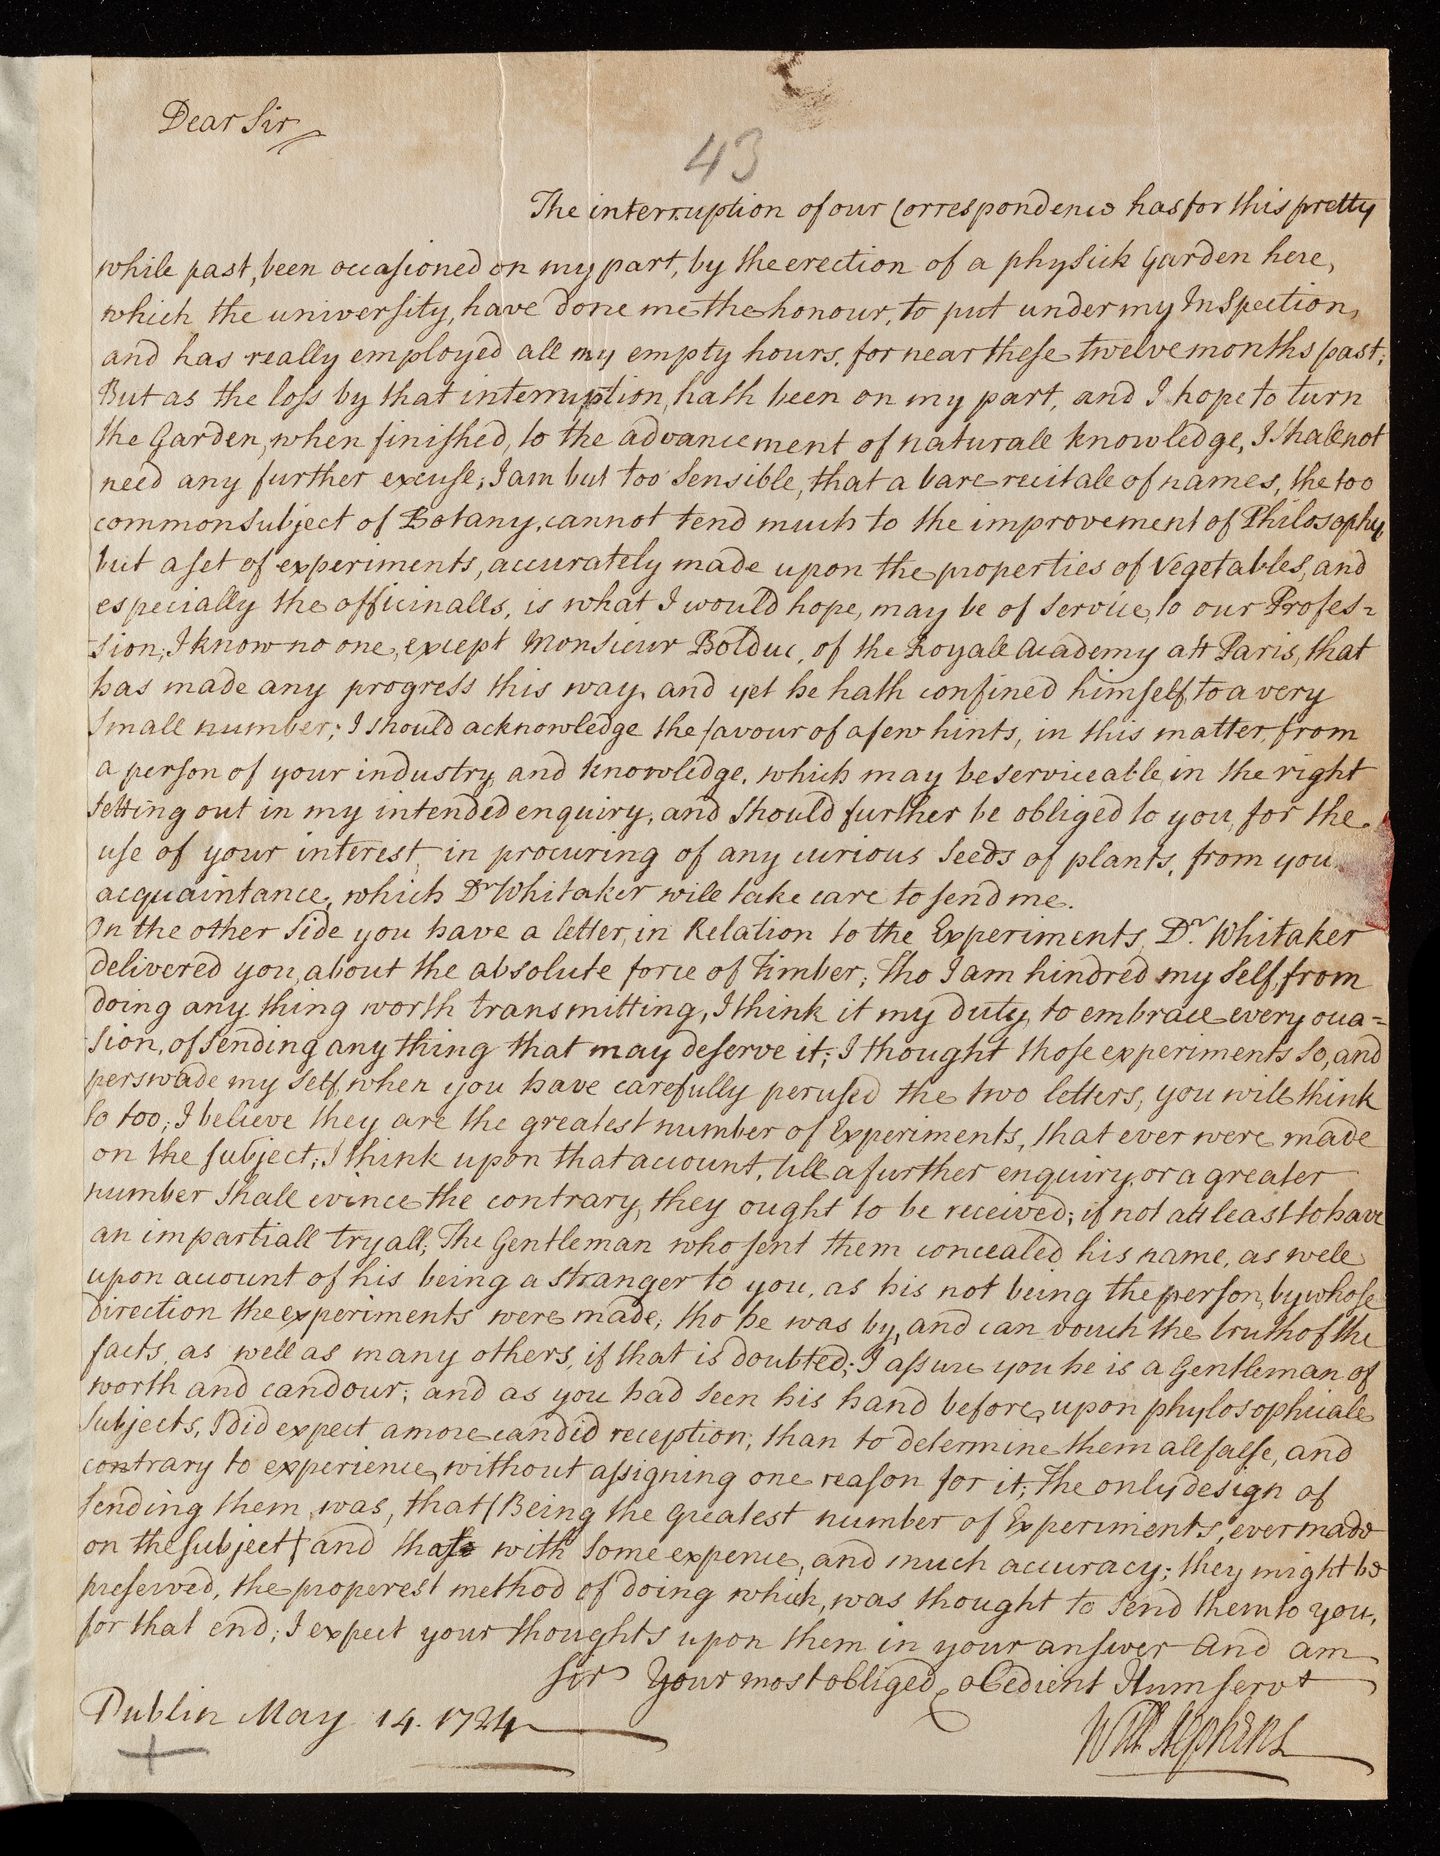 Dear Sir
43
The interruption of our Correspondence has for this pretty
while past, been occasioned on my part, by the erection of a physick Garden here,
which the university, have done me the honour, to put under my Inspection,
and has really employed all my empty hours, for near these twelve months past;
But as the loss by that interruption, hath been on my part, and I hope to turn
the Garden, when finished, to the advancement of naturall knowledge, I shall not
need any further excuse; I am but too sensible, that a bare recitall of names, the too
common subject of Botany, cannot tend much to the improvement of Philosophy
but a set of experiments, accurately made upon the properties of Vegetables, and
especially the officinalls, is what I would hope, may be of service to our Profes=
sion; I know no one, except Monsieur Bolduc, of the Royall Academy att Paris, that
has made any progress this way, and yet he hath confined himself, to a very
small number; I should acknowledge the favour of a few hints, in this matter, from
a person of your industry and knowledge, which may be serviceable in the right
setting out in my intended enquiry, and should further be obliged to you, for the
use of your interest, in procuring of any curious seeds of plants, from you
acquaintance, which Dr Whitaker will take care to send me.
On the other side you have a letter, in Relation to the Experiments, Dr. Whitaker
delivered you, about the absolute force of Timber; tho I am hindred my self, from
doing any thing worth transmitting, I think it my duty, to embrace every occa=
sion, of sending any thing that may deserve it; I thought those experiments so, and
perswade my self, when you have carefully perused the two letters, you will think
so too; I believe they are the greatest number of Experiments, that ever were made
on the subject; I think upon that account, till a further enquiry, or a greater
number shall evince the contrary, they ought to be received; if not att least to have
an impartiall tryall; The Gentleman who sent them concealed his name, as well
upon account of his being a stranger to you, as his not being the person, by whose
direction the experiments were made; tho he was by, and can vouch the truth of the
facts, as well as many others, if that is doubted; I assure you he is a Gentleman of
worth and candour; and as you had seen his hand before, upon phylosophicall
subjects, I did expect a more candid reception; than to determine them all false, and
contrary to experience, without assigning one reason for it; The only design of
sending them, was, that (Being the greatest number of Experiments, ever made
on the subject) and with some expence, and much accuracy; they might be
preserved, the properest method of doing which, was thought to send them to you,
for that end; I expect your thoughts upon them in your answer and am
Sir Your most obliged obedient Hum servt
Will Stephens
Dublin May 14. 1724